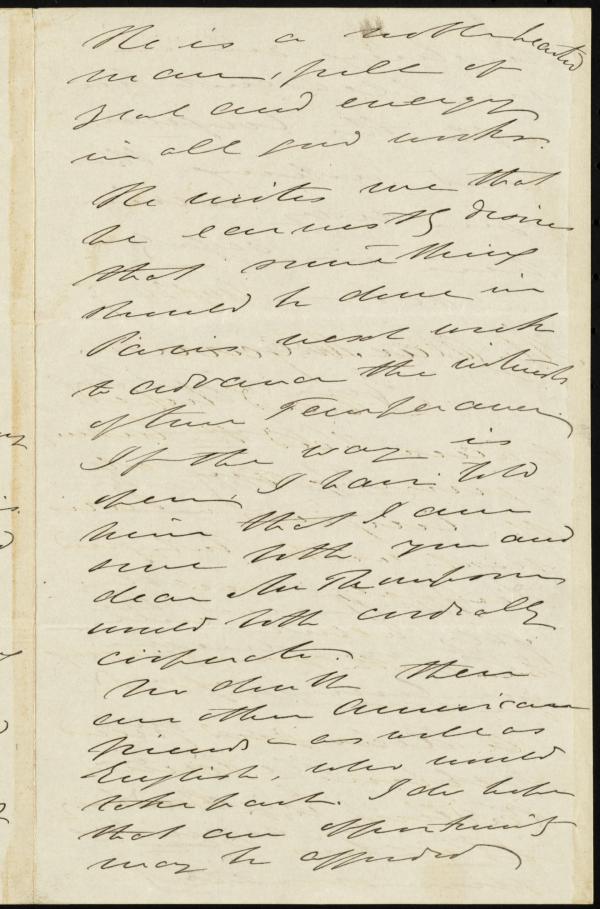 He is a noble hearted
man, full of
zeal and energy
in all good works.
He writes me that
he earnestly desires
that something
should be done in
Paris next week
to advance the interests
of true Temperance.
If the way is
open, I have told
him that I am
sure both you and
dear Mr Thompson
would both cordially
cooperate.
No doubt there
are other American
friends - as well as
English, who would
take part. I do hope
that an opportunity
may be afforded